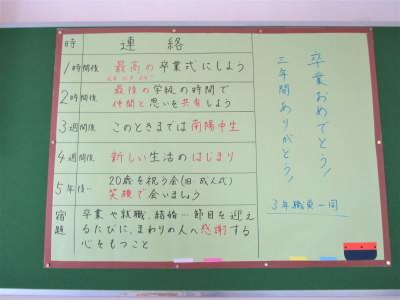 時 連絡
1時間後 最高の卒業式にしよう
2時間後 最後の学級の時間で
仲間と思いを共有しよう
3週間後 このときまでは南陽中生
4週間後 新しい生活のはじまり
5年後… 20歳を祝う会(旧 成人式)
笑顔で会いましょう
宿題 卒業や就職、結婚…節目を迎え
るたびに、まわりの人へ感謝する
心をもつこと
卒業おめでとう!
三年間ありがとう!
3年職員一同